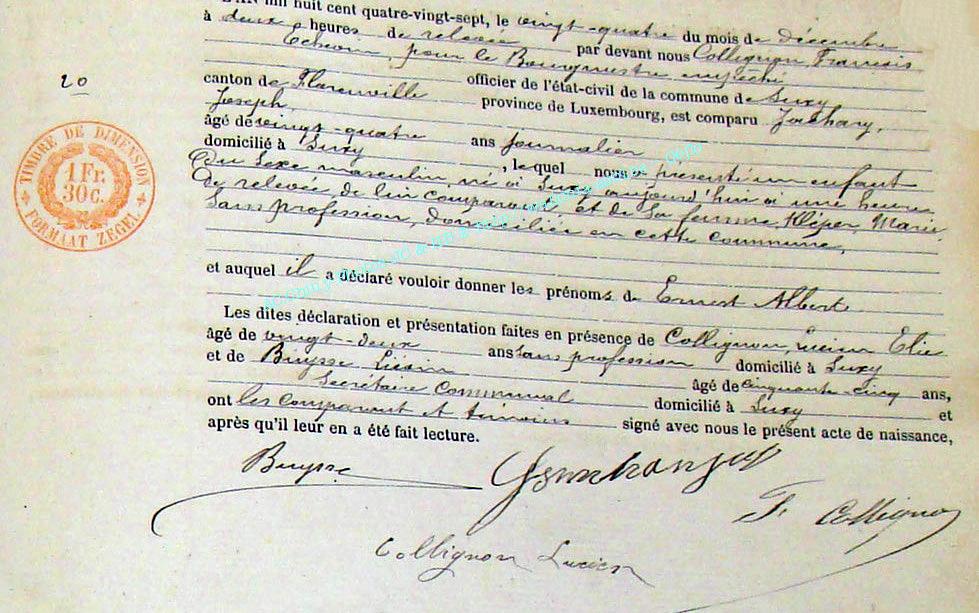 L'AN mil huit cent quatre-vingt-sept, le vingt-quatre du mois de décembre
à deux heures de relevée par devant nous Collignon, François
Echevin, pour le Bourgmestre empêché
officier de l'état-civil de la commune de Suxy
canton de Florenville province de Luxembourg, est comparu Jachary,
Joseph,
âgé de vingt-quatre ans journalier
domicilié à Suxy, lequel nous a présenté un enfant
du sexe masculin, né à Suxy aujourd'hui à une heure
de relevée de lui comparant, et de sa femme, Marie
sans profession, domiciliée en cette commune,
et auquel il a déclaré vouloir donner les prénoms de Ernest Albert
Les dites déclaration et présentation faites en présence de Collignon, Lucien Elie
âgé de vingt-deux ans sans profession domicilié à Suxy
et de Buysse Lucien âgé de cinquante-cinq ans,
Secrétaire Communal domicilié à Suxy et
ont les comparant et témoins signé avec nous le présent acte de naissance,
après qu'il leur en a été fait lecture.
Buysse
F. Collignon
Collignon Lucien
20
TIMBRE DE DIMENSION
1 Fr.
30 c.
FORMAAT ZEGEL